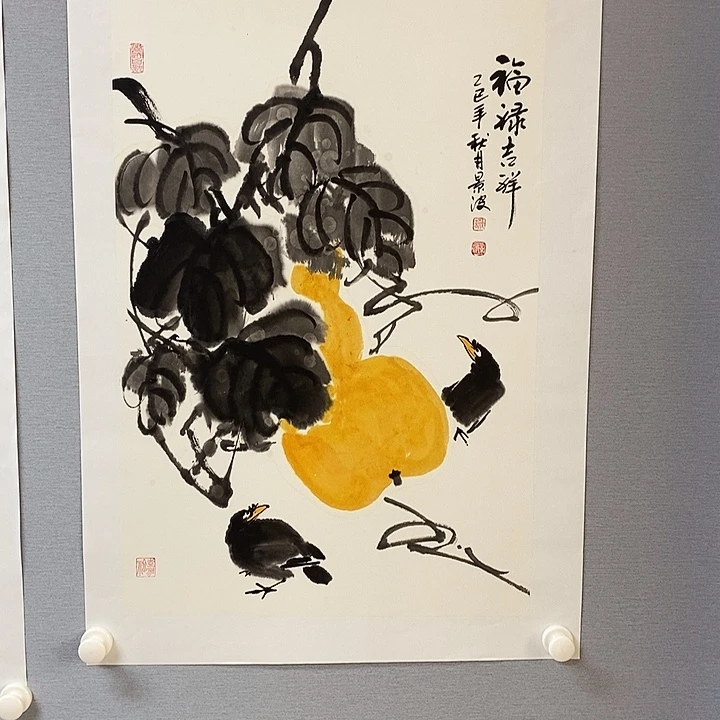 福禄吉祥
乙巳年秋月景波